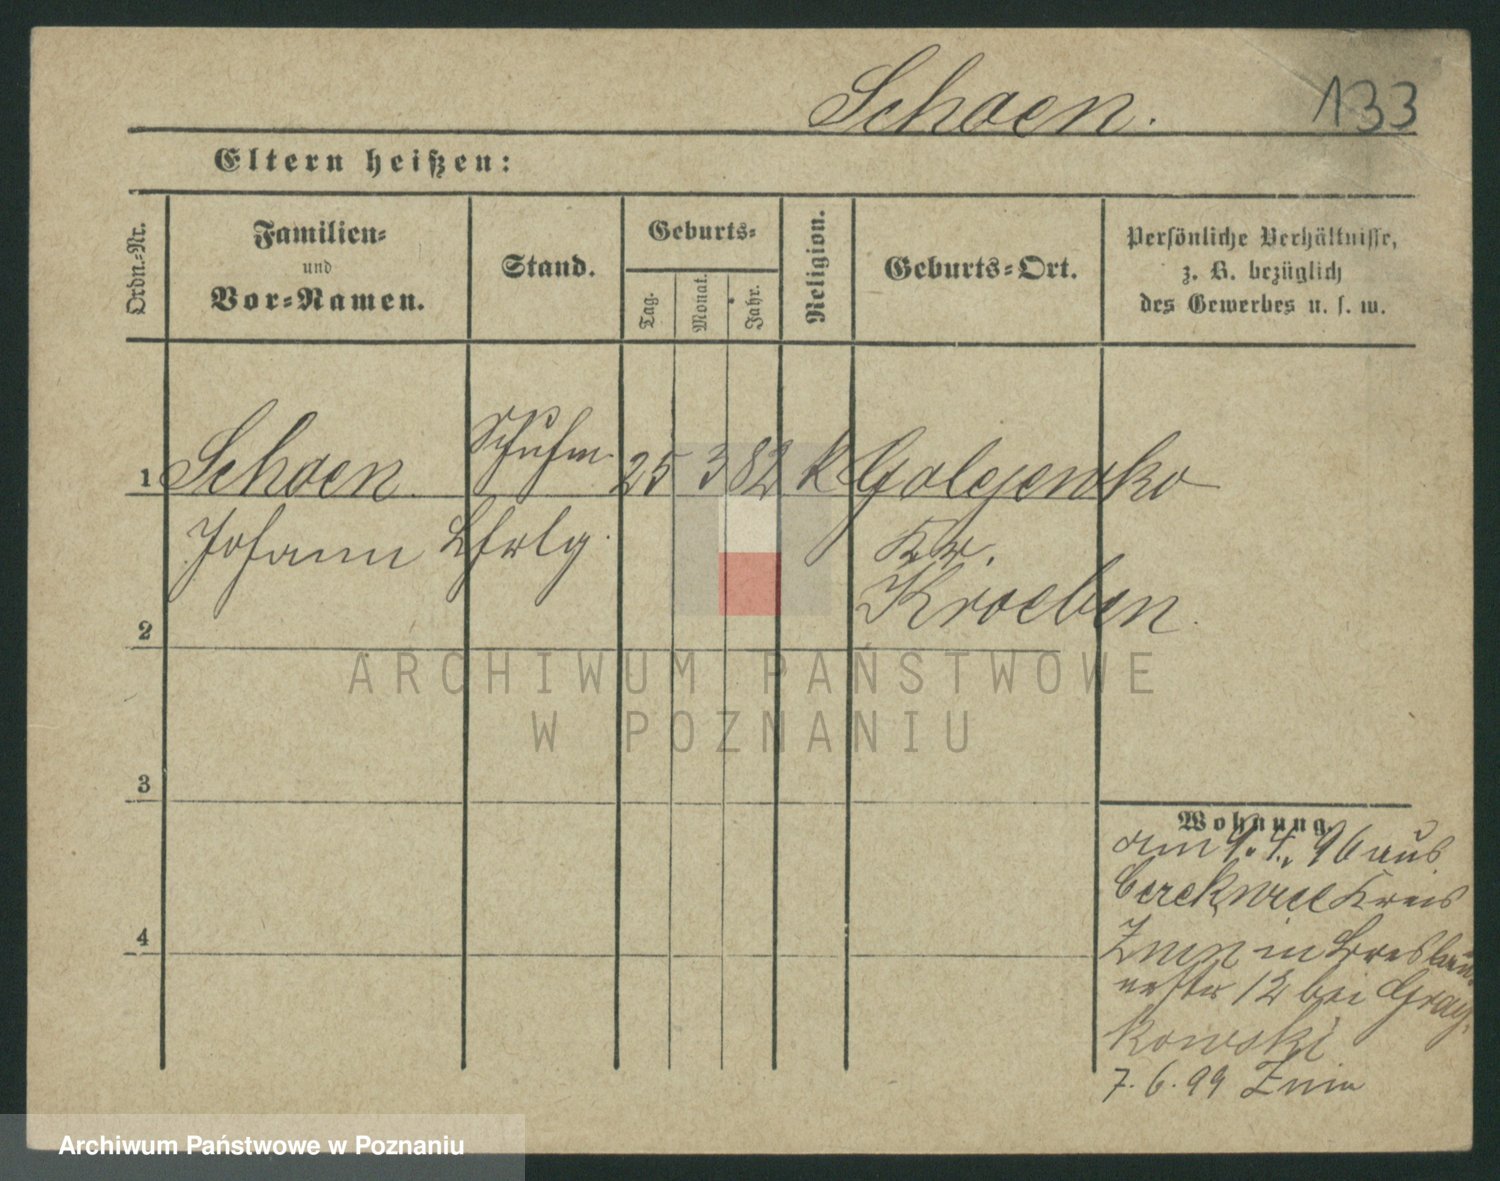 Schoen.
133
Eltern heißen:
Ordn.-Nr.
Familien-
und
Vor-Namen.
Stand.
Geburts-
Tag.
Monat.
Jahr.
Religion.
Geburts-Ort.
Persönliche Verhältnisse,
z. B. bezüglich
des Gewerbes u. s. w.
1 Schoen Schuhm. 25 3 82 k Golejewko
Johann Lehrlg. Kr.
Kroeben.
2
ARCHIWUM PAŃSTWOWE
W POZNANIU
3
Wohnung.
am 9.4. 96 aus
Kreis
4
Znin in Breslau
12 bei
kowski
7.6.99 Znin
Archiwum Państwowe w Poznaniu